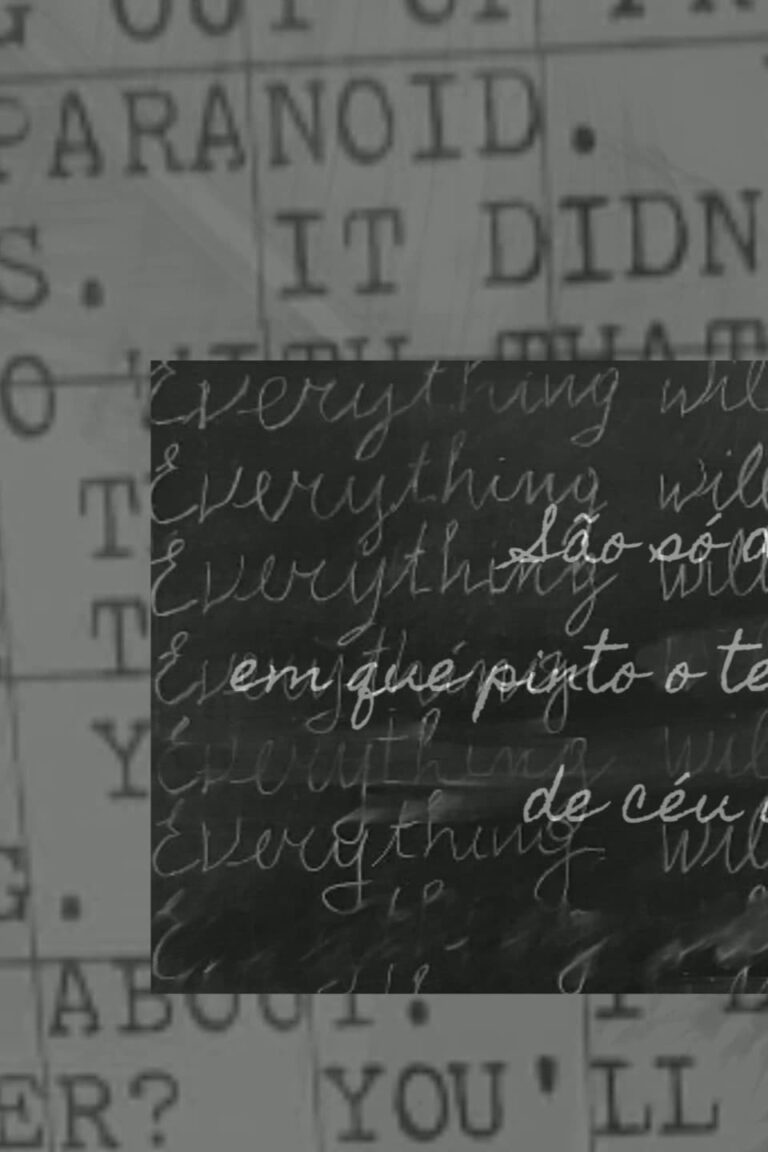 OUT OF
PARANOID.
S. IT DIDN
O WITH THAT
T
T
Y
G.
ABOUT. I
ER? YOU'LL
Everything wil
Everything will
São só a
Everything will
em que pinto o te
Everything
Everything wil
de céu
Everything wil